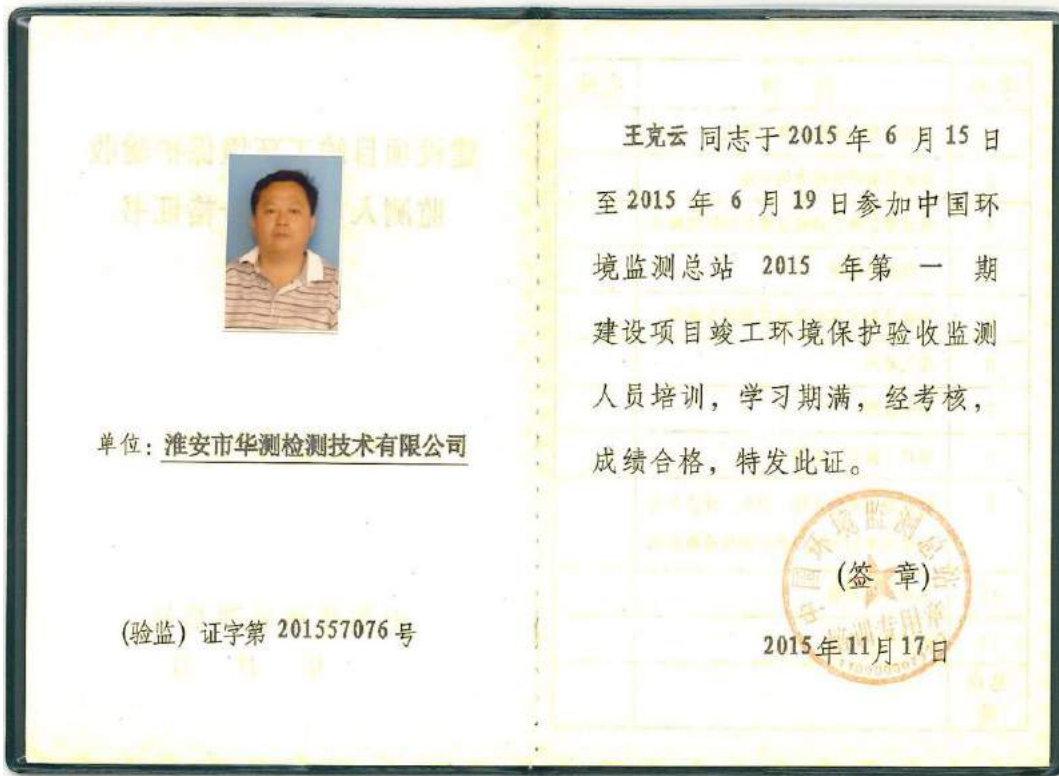 单位：淮安市华测检测技术有限公司
(验监) 证字第 201557076 号
王克云 同志于 2015 年 6 月 15 日
至 2015 年 6 月 19 日参加中国环
境监测总站 2015 年第 一 期
建设项目竣工环境保护验收监测
人员培训，学习期满，经考核，
成绩合格，特发此证。
中国环境监测总站
(签 章)
培训专用章
2015年11月17日